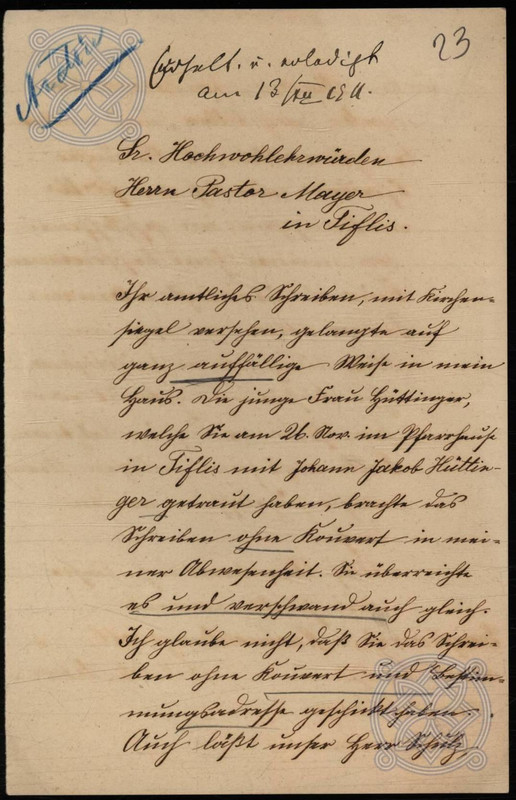 23
Erhalt. u. erledigt
am 13/XII
Sr. Hochwohlehrwürden
Herrn Pastor Mayer
in Tiflis.
Ihr amtliches Schreiben, mit Kirchen-
siegel versehen, gelangte auf
ganz auffällige Weise in mein
Haus. Die junge Frau Hüttinger,
welche Sie am 26. Nov. im Pfarrhause
in Tiflis mit Johann Jakob Hüttin-
ger getraut haben, brachte das
Schreiben ohne Kouvert in mei-
ner Abwesenheit. Sie überreichte
es und verschwand auch gleich.
Ich glaube nicht, daß Sie das Schrei-
ben ohne Kouvert und Bestim-
mungsadresse geschickt haben.
Auch läßt unser Herr Schulz